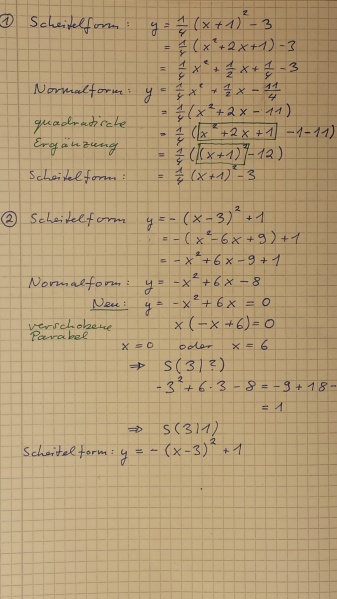 ① Scheitelform: y = 1/4 (x+1)² - 3
= 1/4 (x²+2x+1) - 3
= 1/4 x² + 1/2 x + 1/4 - 3
Normalform: y = 1/4 x² + 1/2 x - 11/4
= 1/4 (x²+2x-11)
quadratische Ergänzung
= 1/4 (x²+2x+1 -1-11)
= 1/4 ((x+1)² -12)
Scheitelform: = 1/4 (x+1)² - 3
② Scheitelform y = - (x-3)² + 1
= - (x²-6x+9) + 1
= -x²+6x-9+1
Normalform: y = -x²+6x-8
Neu: y = -x²+6x = 0
verschobene Parabel
x(-x+6) = 0
x=0 oder x=6
⇒ S(3|?)
-3²+6·3-8 = -9+18-
= 1
⇒ S(3|1)
Scheitelform: y = - (x-3)² + 1